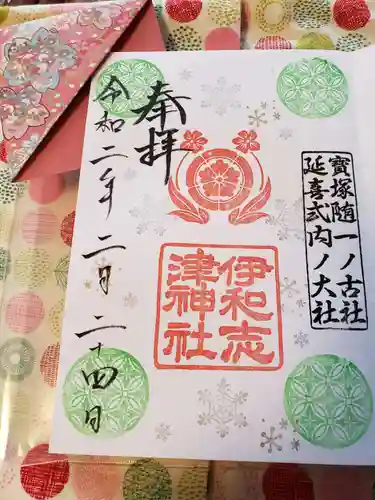 寶塚随一ノ古社
延喜式内ノ大社
奉拝
伊和志
津神社
令和二年二月二十四日